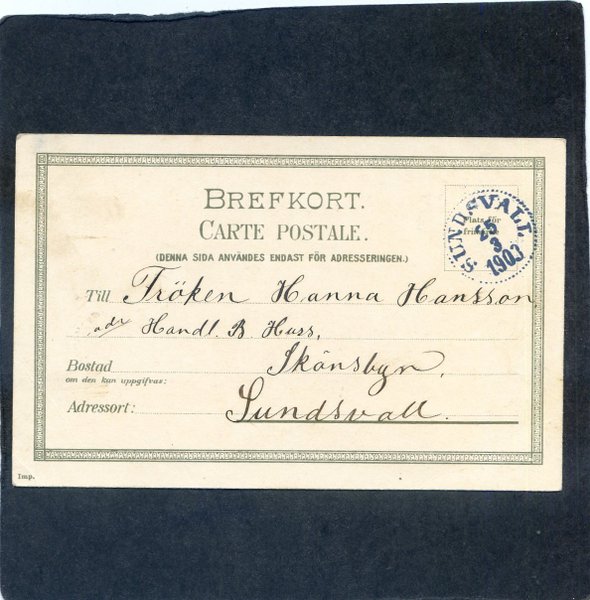 BREFKORT.
CARTE POSTALE.
(DENNA SIDA ANVÄNDES ENDAST FÖR ADRESSERINGEN.)
Plats för
SUNDSVALL
25
3
1903
Till Fröken Hanna Hansson
adr Handl. B. Huss,
Bostad Skönsbyn,
om den kan uppgifvas:
Adressort: Sundsvall.
Imp.